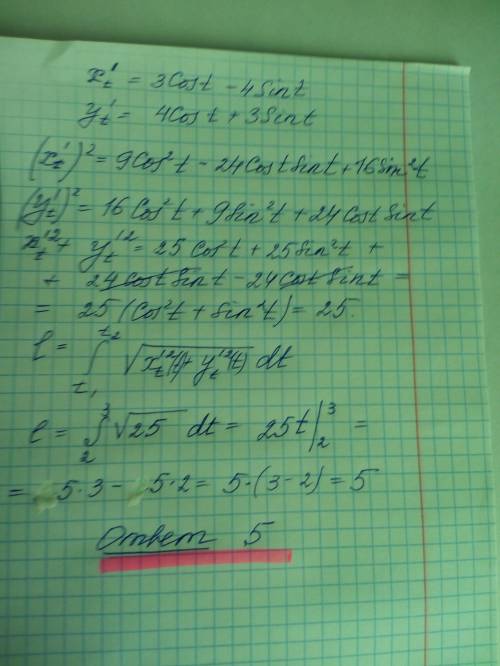 x't = 3Cost - 4Sint
y't = 4Cost + 3Sint
(x't)² = 9Cos²t - 24CostSint + 16Sin²t
(y't)² = 16Cos²t + 9Sin²t + 24Cost Sint
x't² + y't² = 25Cos²t + 25Sin²t +
+ 24Cost Sint - 24Cost Sint =
= 25(Cos²t + Sin²t) = 25.
l = ∫_{t₁}^{t₂} √(x't²(t) + y't²(t)) dt
l = ∫_2^3 √25 dt = 25t |_2^3 =
= 5·3 - 5·2 = 5·(3-2) = 5
Ответ 5